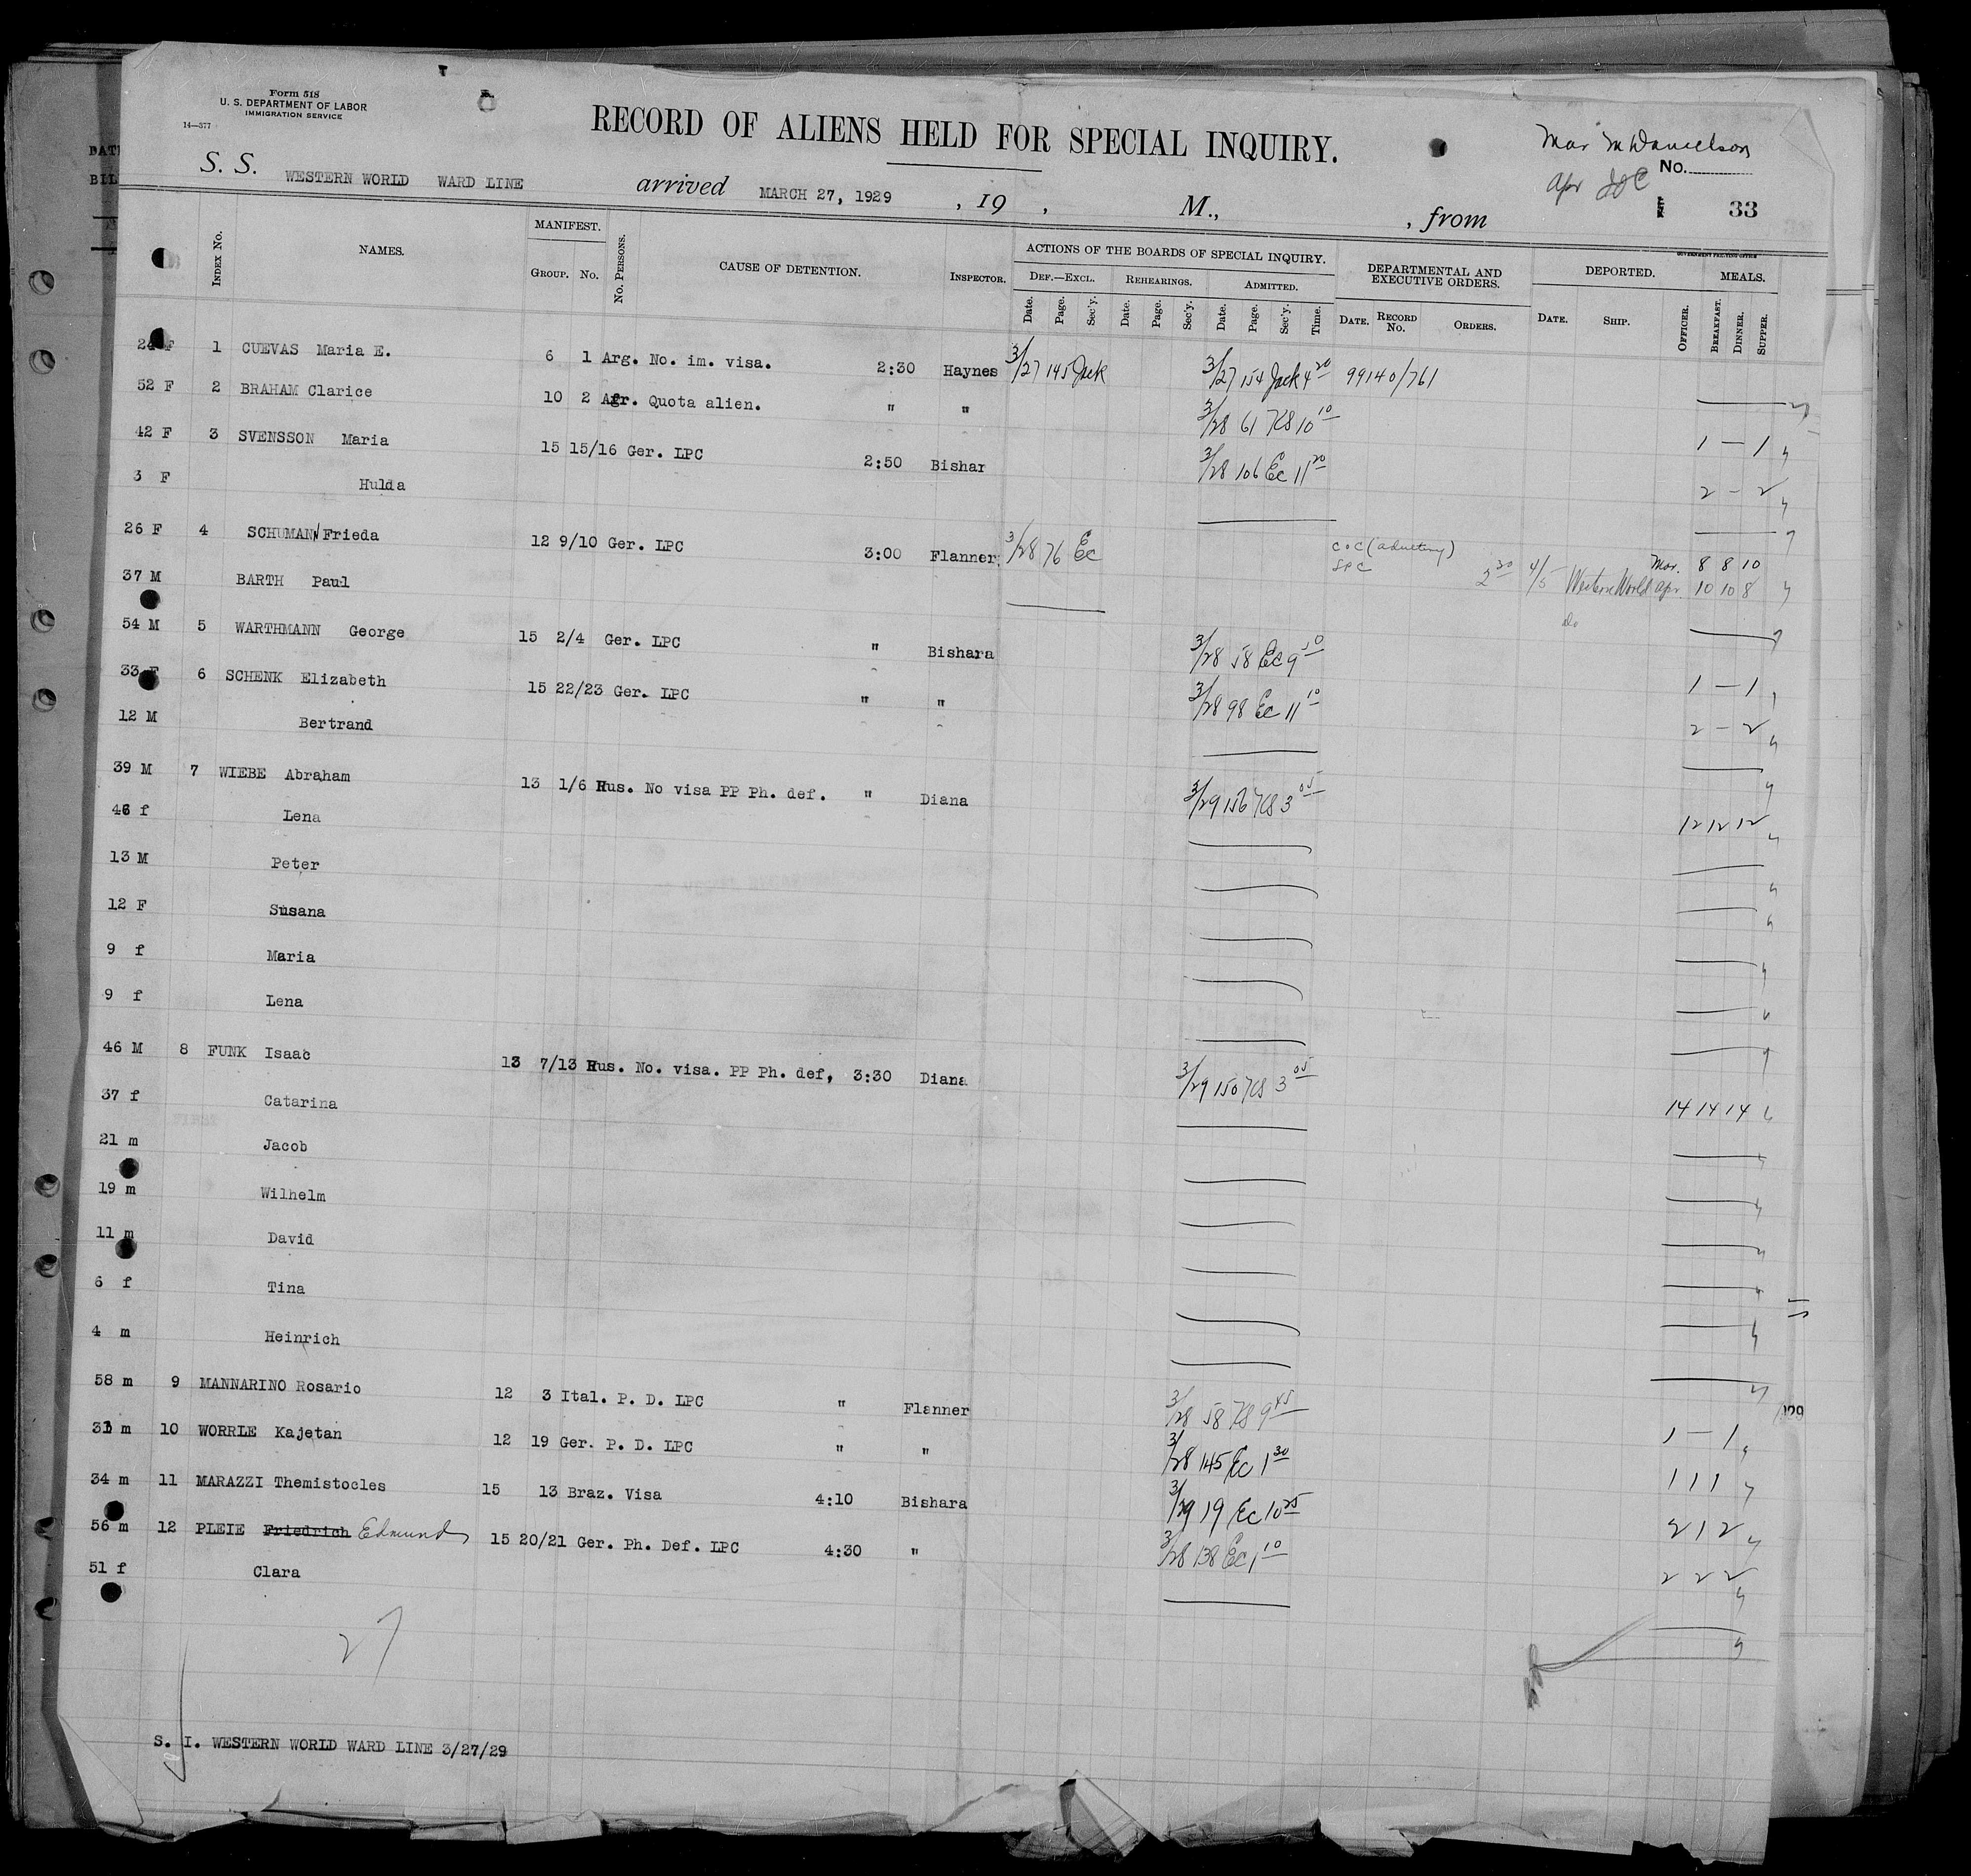 Form 518
U. S. DEPARTMENT OF LABOR
IMMIGRATION SERVICE
14—377
RECORD OF ALIENS HELD FOR SPECIAL INQUIRY.
No.
33
S. S. WESTERN WORLD WARD LINE arrived MARCH 27, 1929 , 19 , M., , from
INDEX No. NAMES. MANIFEST. GROUP. No. No. PERSONS. CAUSE OF DETENTION. INSPECTOR. ACTIONS OF THE BOARDS OF SPECIAL INQUIRY. DEF.—EXCL. REHEARINGS. ADMITTED. DEPARTMENTAL AND EXECUTIVE ORDERS. DEPORTED. MEALS.
Date. Page. Sec'y. Date. Page. Sec'y. Date. Page. Sec'y. Time. DATE. RECORD No. ORDERS. DATE. SHIP. OFFICER. BREAKFAST. DINNER. SUPPER.
24 F 1 CUEVAS Maria E. 6 1 Arg. No. im. visa. 2:30 Haynes 3/27 145 Jack 3/27 154 Jack 4 20 99140/761
52 F 2 BRAHAM Clarice 10 2 Quota alien. " " 3/28 61 KS 10 10 1 — 1
42 F 3 SVENSSON Maria 15 15/16 Ger. LPC 2:50 Bishar 3/28 106 Ec 11 20 2 — 2
3 F Hulda
26 F 4 SCHUMAN Frieda 12 9/10 Ger. LPC 3:00 Flanner 3/28 76 Ec COC (adultery) LPC 2 30 4/5 Western World Mar. 8 8 10
37 M BARTH Paul Do Apr. 10 10 8
54 M 5 WARTHMANN George 15 2/4 Ger. LPC " Bishara 3/28 58 Ec 9 50 1 — 1
33 F 6 SCHENK Elizabeth 15 22/23 Ger. LPC " " 3/28 98 Ec 11 10 2 — 2
12 M Bertrand
39 M 7 WIEBE Abraham 13 1/6 Rus. No visa PP Ph. def. " Diana 3/29 156 KS 3 05 12 12 12
46 f Lena
13 M Peter
12 F Susana
9 f Maria
9 f Lena
46 M 8 FUNK Isaac 13 7/13 Rus. No. visa. PP Ph. def, 3:30 Diana 3/29 150 KS 3 05 14 14 14
37 f Catarina
21 m Jacob
19 m Wilhelm
11 m David
6 f Tina
4 m Heinrich
58 m 9 MANNARINO Rosario 12 3 Ital. P. D. LPC " Flanner 3/28 58 KS 9 45 1 — 1
m 10 WORRLE Kajetan 12 19 Ger. P. D. LPC " " 3/28 145 Ec 1 30 1 1 1
34 m 11 MARAZZI Themistocles 15 13 Braz. Visa 4:10 Bishara 3/29 19 Ec 10 25 2 1 2
56 m 12 PLEIE Friedrich Edmund 15 20/21 Ger. Ph. Def. LPC 4:30 " 3/28 138 Ec 1 10 2 2 2
51 f Clara
27
S. I. WESTERN WORLD WARD LINE 3/27/29